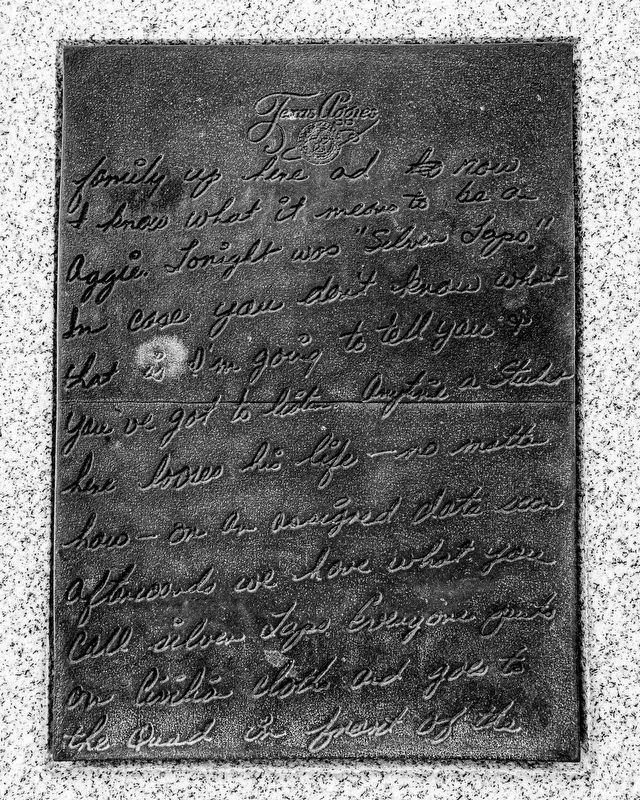 Texas Aggies
family up here ad to now
I know what it means to be an
Aggie. Tonight was "Silver Taps."
In case you don't know what
that is I'm going to tell you &
you've got to listen. Anytime a Student
here looses his life – no matter
how – on an assigned date soon
afterwards we have what you
call silver Taps. Everyone puts
on Civilian cloths and goes to
the Quad in front of the